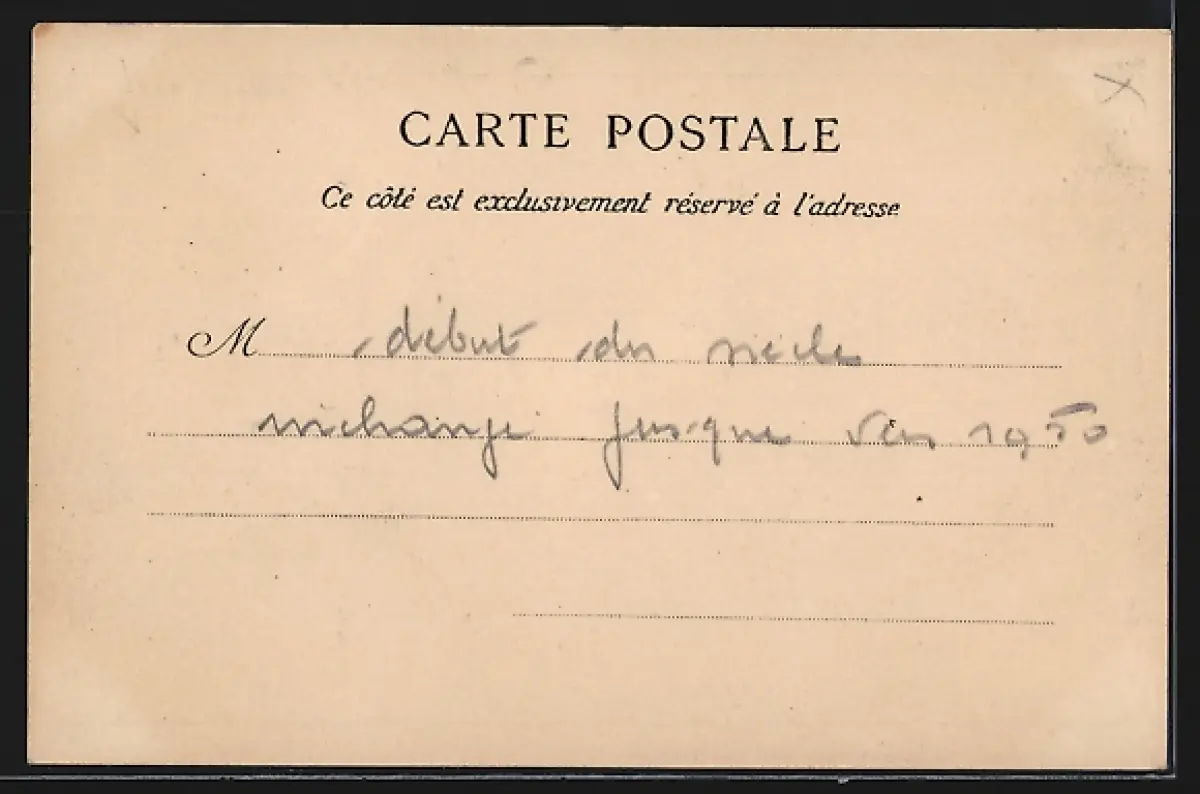 CARTE POSTALE
Ce côté est exclusivement réservé à l'adresse
M début du siècle
inchangé jusque vers 1950